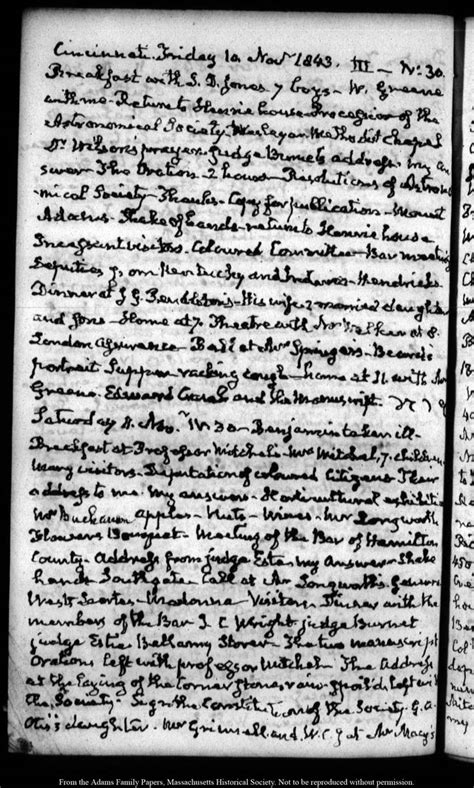 Cincinnati. Friday 10. Novr 1843. III — No. 30.
Breakfast with S. D. Jones 7 boys — W. Greene
with me. Return to Henrie house Procession of the
Astronomical Society. Wesleyan Methodist Chapel
Dr Wilson's prayer. Judge Burnet's address. my an
swer. The Oration. 2 hours — Resolutions of Astrono
mical Society. Thanks. Copy for publication. Mount
Adams. Shake of hands. return to Henrie house
visitors. Coloured Committee. Bar meeting
Deputies from Kentucky and Indiana. Hendricks
Dinner at Pendleton's. His wife, married daughter
and sons. Home at 7. Theatre with Mr Walker at 8.
London Assurance. Ball at Mr Springer's. Beard's
portrait Supper racking cough — home at 11. with Mr
Greene. Edward and the Manuscript
Saturday 11. IV. 30 — Benjamin taken ill.
Breakfast at Professor Mitchel's — Mrs Mitchel, 7. children
Many visitors. Deputation of coloured Citizens. Their
address to me. My answer. Horticultural exhibition
Mr Buchanan Apples — Nuts — Wines — Mr Longworth
Flowers Bouquet. Meeting of the Bar of Hamilton
County. Address from judge Este. my Answer. Shake
hands Southgate. Call at Mr Longworth's.
West's Madonna. Visitors. Dinner with the
members of the Bar J. C. Wright, judge Burnet
judge Este Bellamy Storer. The two manuscript
Orations left with professor Mitchel. The Address
at the laying of the Corner stone, left with
the Society. Sign the Constitution of the Society. G. A.
Otis's daughter. Mr Grinnell and at Mr Macy's
From the Adams Family Papers, Massachusetts Historical Society. Not to be reproduced without permission.